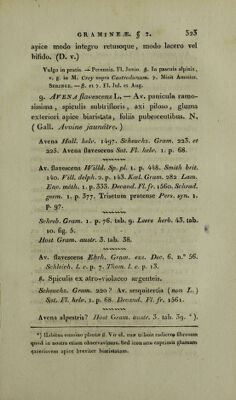 GRAMINEÆ. § 2. 323
apice modo integro retusoque, modo lacero vel
bifido. (D. v.)
Vulgo in pratis. — Perennis. Fl. Junio. β. In pascuis alpinis,
v. g. in M. Crey supra Castrodunum. γ. Misit Amicics.
SERINGE. — β. et γ. Fl. Jul. et Aug.
9. AVENA flavescens L. — Av. panicula ramo-
sissima, spiculis subtrifloris, axi piloso, gluma
exteriori apice biaristata, foliis pubescentibus. N.
( Gall. Avoine jaunâtre.)
Avena Hall. helv. 1497. Scheuchz. Gram. 223. et
225. Avena flavescens Sut. Fl. helv. 1. p. 68.
Av. flavescens Willd. Sp. pl. 1. p. 448. Smith brit.
140. Vill. delph. 2. p. 143. Kœl. Gram. 282 Lam.
Enc. méth. 1. p. 333. Decand. Fl. fr. 1560. Schrad.
germ. 1. p. 377. Trisetum pratense Pers. syn. 1.
p. 97.
Schreb. Gram. 1. p. 76. tab. 9. Leers herb. 43. tab.
10. fig. 5.
Host Gram. austr. 3. tab. 38.
Av. flavescens Ehrh. Gram. exs. Dec. 6. n.° 56.
Schleich. l. c. p. 7. Thom. l. c. p. 13.
β. Spiculis ex atro-violaceo argenteis.
Scheuchz. Gram. 220? Av. sesquitertia (non L.)
Sut. Fl. helv. 1. p. 68. Decand. Fl. fr. 1561.
Avena alpestris? Host Gram. austr. 3. tab. 39. *).
*) Habitus omnino plantæ β. Vir cl. suæ tribuit radicem fibrosam
quod in nostra etiam observavimus. Sed icon non caprinis glumam
exteriorem apice breviter biaristatam.